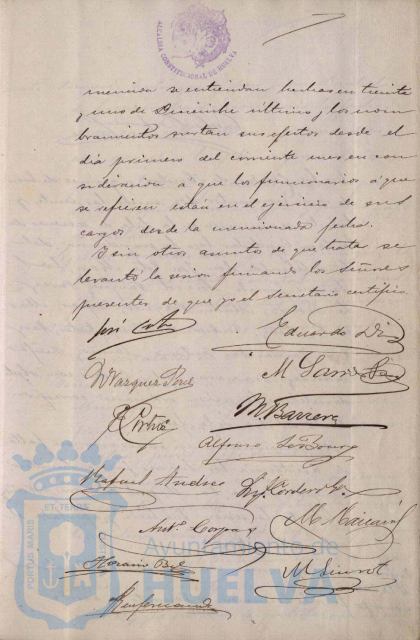 ALCALDIA CONSTITUCIONAL DE HUELVA
mencion se entiendan hechas en treinta
y uno de Diciembre último y los nom-
bramientos surtan sus efectos desde el
día primero del corriente mes en con
sideracion á que los funcionarios á que
se refieren están en el ejercicio de sus
cargos desde la mencionada fecha.
Y sin otros asuntos de que tratar se
levantó la sesion firmando los Señores
presentes de que yo el Secretario certifico
José
Eduardo Diaz
D Vazquez Perez
M
M. Barrera
Alfonso
Rafael
Cordero
Antº Corpas
Horacio Bel
M Siurot
PORTUS MARIS ET TERRAE
Ayuntamiento de
HUELVA